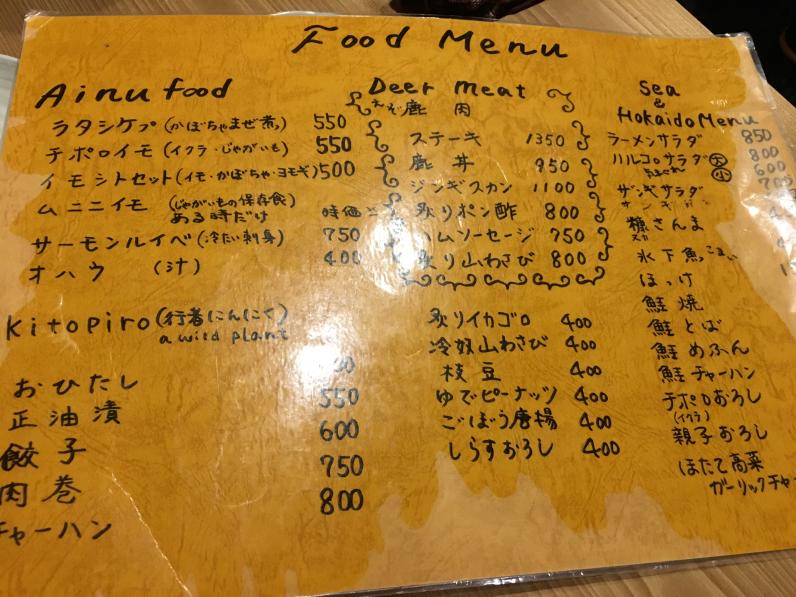 Food Menu
Ainu food
ラタシケプ(かぼちゃまぜ煮) 550
チポロイモ(イクラ・じゃがいも) 550
イモシトセット(イモ・かぼちゃ・ヨモギ) 500
ムニニイモ (じゃがいもの保存食)
ある時だけ 時価
サーモンルイベ(冷たい刺身) 750
オハウ (汁) 400
Kitopiro(行者にんにく)
a wild plant
おひたし
正油漬 550
餃子 600
肉巻 750
チャーハン 800
Deer meat
えぞ鹿肉
ステーキ 1350
鹿丼 950
ジンギスカン 1100
炙りポン酢 800
ハムソーセージ 750
炙り山わさび 800
炙りイカゴロ 400
冷奴山わさび 400
枝豆 400
ゆでピーナッツ 400
ごぼう唐揚 400
しらすおろし 400
Sea
&
Hokaido Menu
ラーメンサラダ 850
ハルコロサラダ 大 800
小 600
ザンギサラダ
糠さんま
氷下魚
ほっけ
鮭焼
鮭とば
鮭めふん
鮭チャーハン
チポロおろし
(イクラ)
親子おろし
ほたて高菜
ガーリックチャー